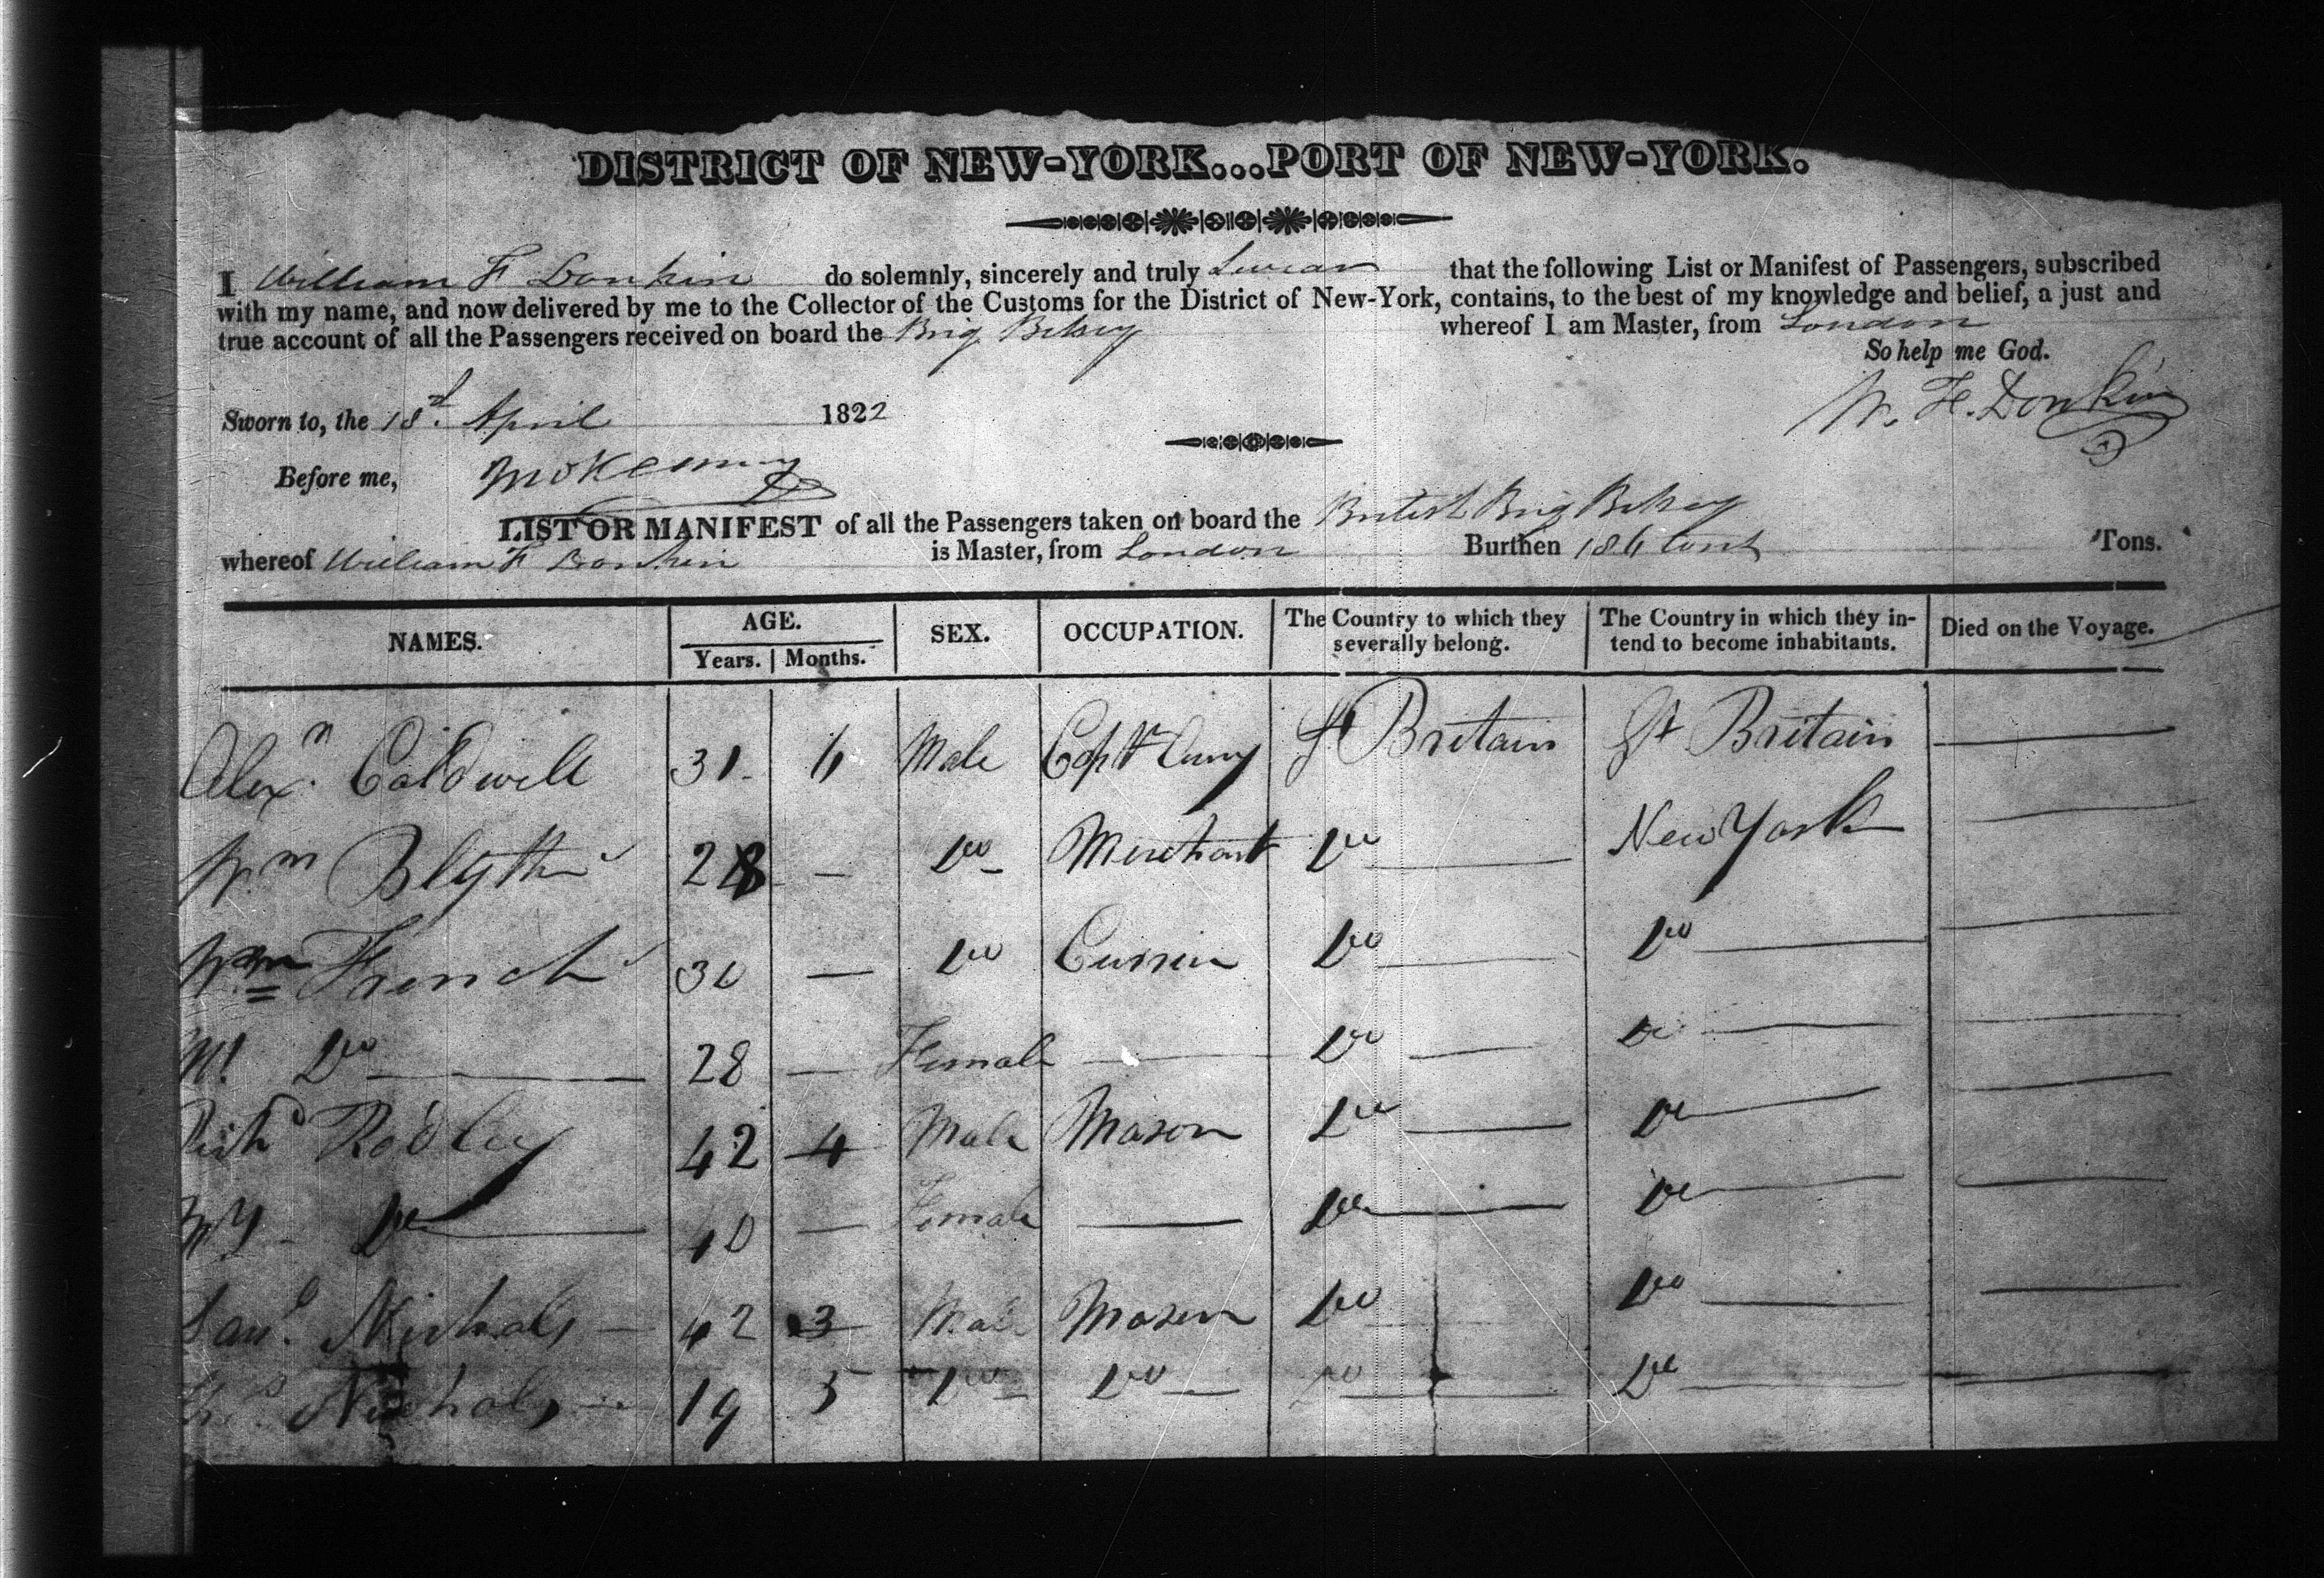 DISTRICT OF NEW-YORK...PORT OF NEW-YORK.
I William F Donkin do solemnly, sincerely and truly Swear that the following List or Manifest of Passengers, subscribed
with my name, and now delivered by me to the Collector of the Customs for the District of New-York, contains, to the best of my knowledge and belief, a just and
true account of all the Passengers received on board the Brig Betsey whereof I am Master, from London
So help me God.
W. F. Donkin
Sworn to, the 18d. April 1822
Before me,
LIST OR MANIFEST of all the Passengers taken on board the British Brig Betsey
whereof William F Donkin is Master, from London Burthen 186 tons Tons.
NAMES. AGE. SEX. OCCUPATION. The Country to which they severally belong. The Country in which they intend to become inhabitants. Died on the Voyage.
Years. Months.
Alexr. Caldwell 31 6 Male Capt Army Gt Britain Gt Britain —
Wm Blyth 28 — Do Merchant Do New York —
Wm French 30 — Do Currier Do Do —
Do 28 — Female — Do Do —
Richd Rodley 42 4 Male Mason Do Do —
Do 40 — Female — Do Do —
Saml. Nichols 42 3 Male Mason Do Do —
Ths. Nichols 19 5 Do Do Do Do —